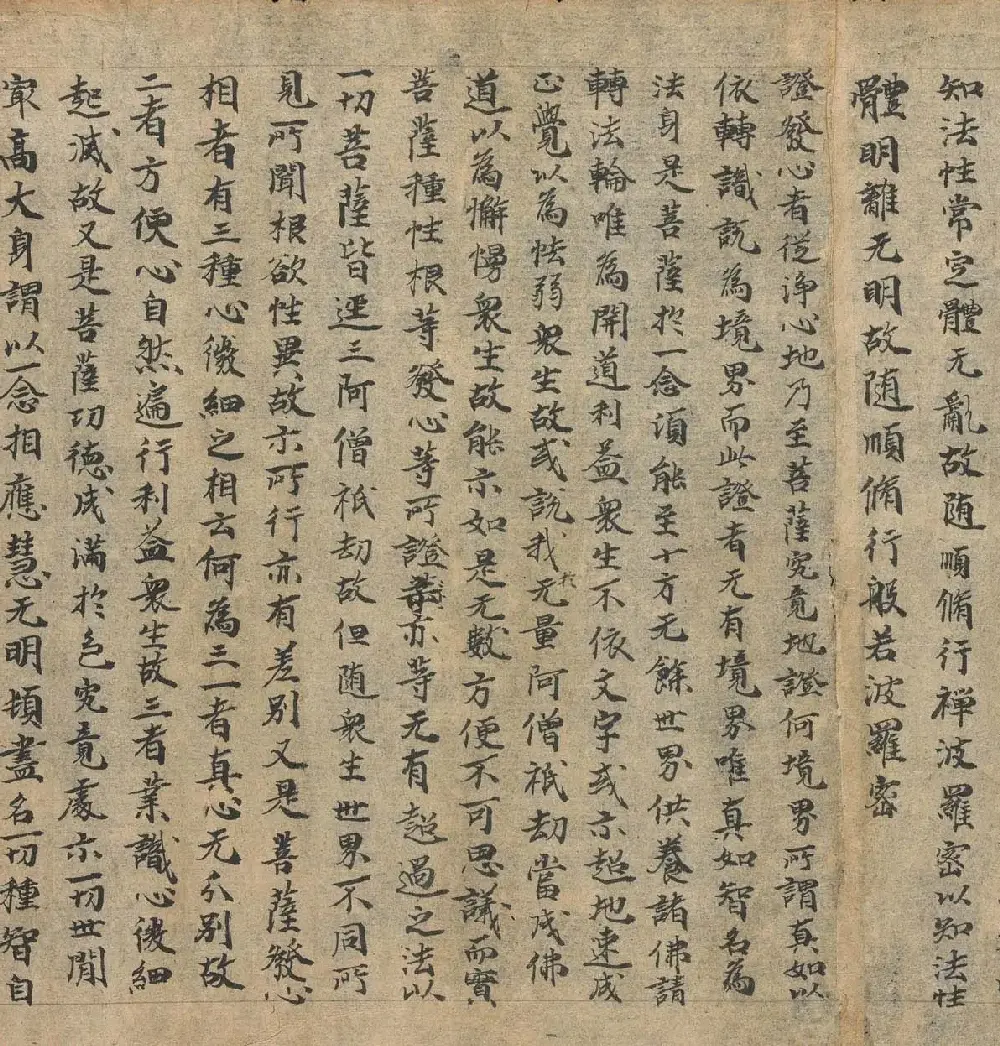 知法性常定體无亂故随順脩行禅波羅密以知法性
體明離无明故随順脩行般若波羅密
證發心者従淨心地乃至菩薩究竟地證何境界所謂真如以
依轉識説為境界而此證者无有境界唯真如智名為
法身是菩薩於一念須能至十方无餘世界供養諸佛請
轉法輪唯為開道利益衆生不依文字或示超地速成
正覺以為怯弱衆生故或説我於无量阿僧祇劫當成佛
道以為懈慢衆生故能示如是无數方便不可思議而實
菩薩種性根等發心等所證亦等无有超過之法以
一切菩薩皆逕三阿僧祇劫故但随衆生世界不同所
見所聞根欲性異故示所行亦有差别又是菩薩發心
相者有三種心微細之相云何為三一者真心无分别故
二者方便心自然遍行利益衆生故三者業識心微細
起滅故又是菩薩功徳成滿於色究竟處示一切世間
冣高大身謂以一念相應慧无明頓盡名一切種智自